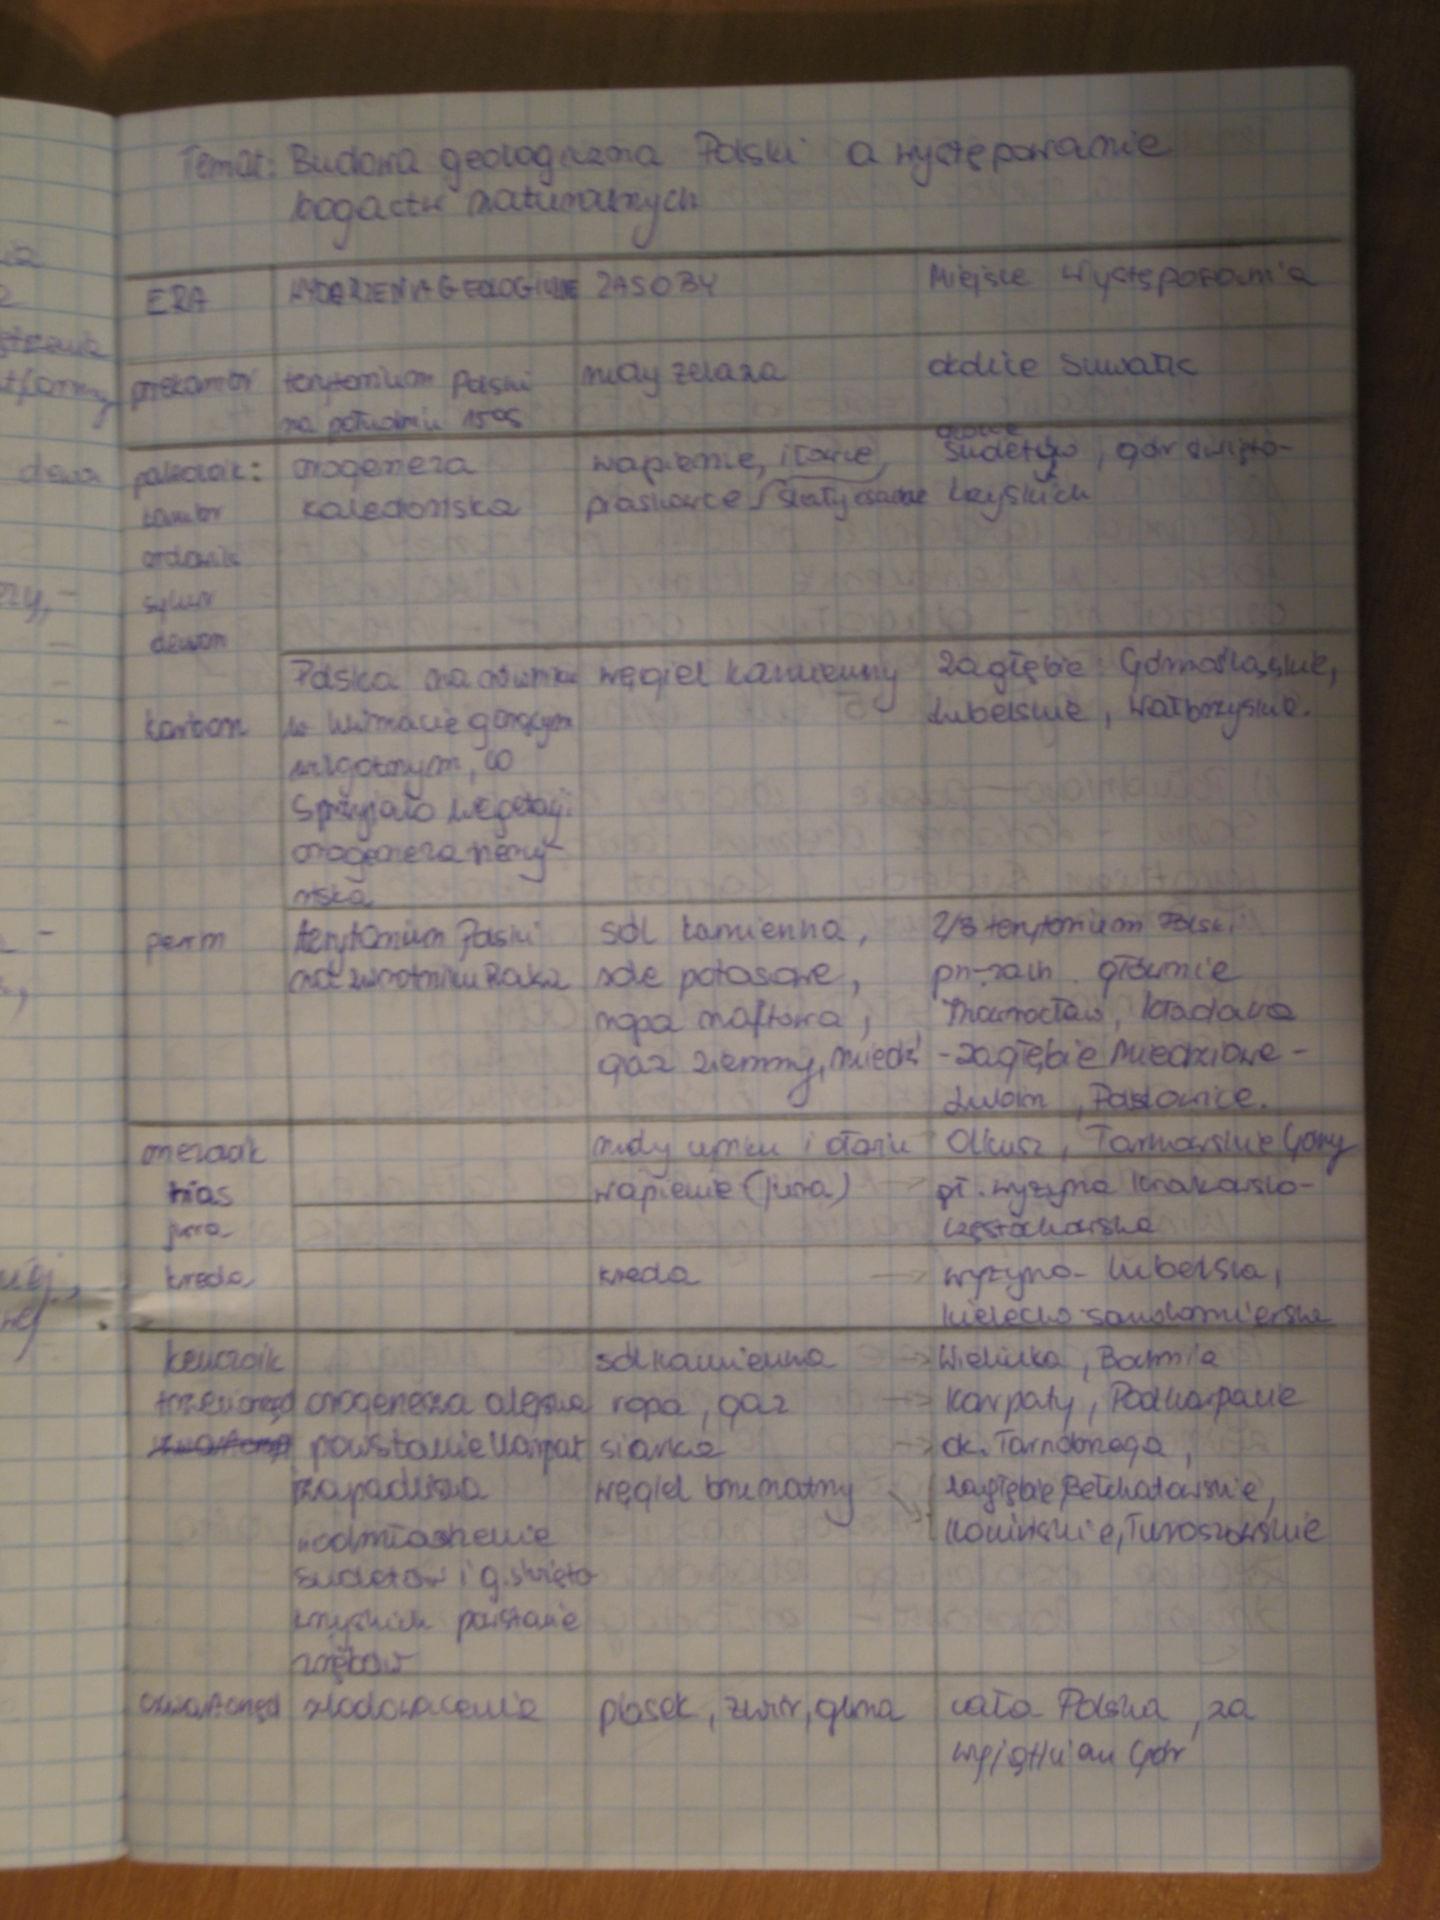 Temat: Budowa geologiczna Polski a występowanie
bogactw naturalnych
ERA
WYDARZENIA GEOLOGICZNE
ZASOBY
Miejsce występowania
prekambr
terytorium Polski
na południu 15°S
rudy żelaza
okolice Suwałk
paleozoik:
kambr
ordowik
sylur
dewon
orogeneza
kaledońska
wapienie, iłowce,
piaskowce / skały osadowe
Sudetów, gór święto-
krzyskich
karbon
Polska na równiku
w klimacie gorącym
wilgotnym, co
sprzyjało wegetacji
orogeneza hercy-
ńska
węgiel kamienny
zagłębie: Górnośląskie,
Lubelskie, Wałbrzyskie.
perm
terytorium Polski
nad zwrotnikiem Raka
sól kamienna,
sole potasowe,
ropa naftowa,
gaz ziemny, miedź
2/3 terytorium Polski
pn-zach głównie
Inowrocław, Kłodawa
-zagłębie Miedziowe-
Lubin, Polkowice.
mezozoik
trias
jura
kreda
rudy cynku i ołowiu
Olkusz, Tarnowskie Góry
wapienie (jura) →
wyżyna Krakowsko-
częstochowska
kreda →
wyżyna Lubelska,
kielecko sandomierska
kenozoik
trzeciorzęd
orogeneza alpejska
powstanie Karpat
zapadliska
"odmłodzenie
Sudetów i g. święto
krzyskich powstanie
zrębów
sól kamienna →
ropa, gaz →
siarka →
węgiel brunatny
Wieliczka, Bochnia
Karpaty, Podkarpacie
ok. Tarnobrzega,
zagłębie Bełchatowskie,
Konińskie, Turoszowskie
czwartorzęd
zlodowacenia
piasek, żwir, glina
cała Polska, za
wyjątkiem Gór